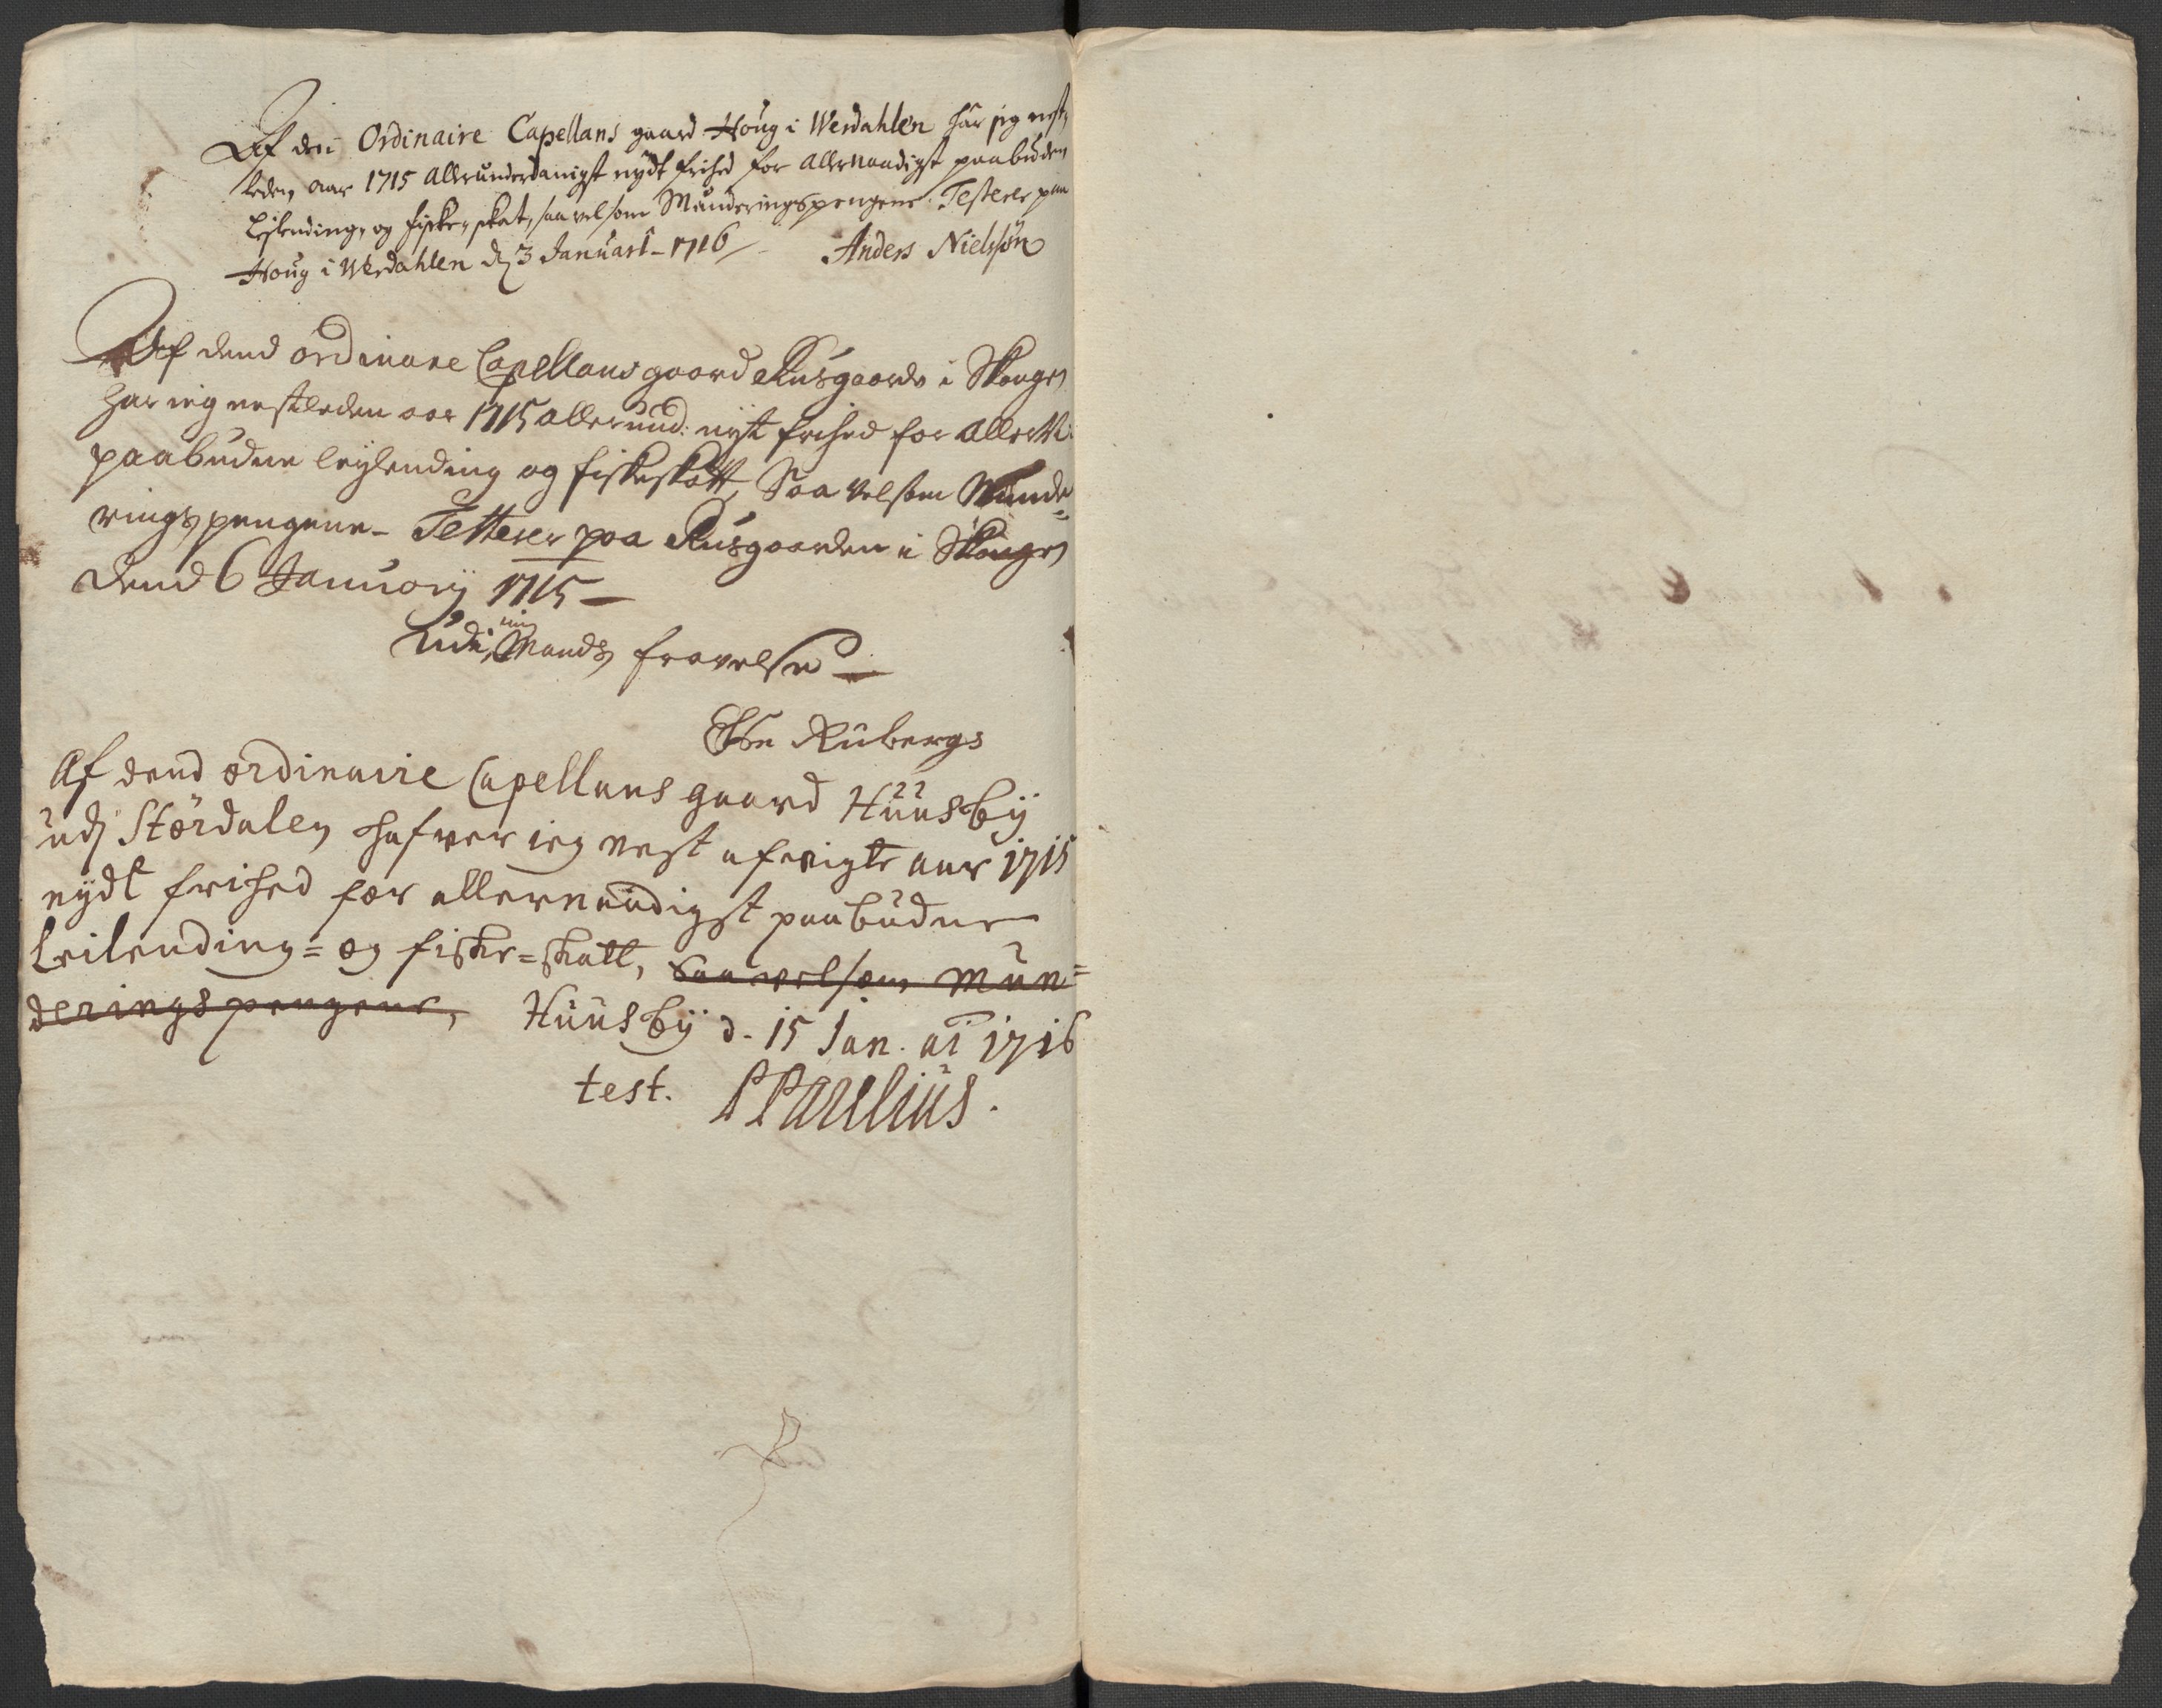 Af den Ordinaire Capellans gaard Houg i Werdahlen har jeg nest,
leden aar 1715 allerunderdanigst nydt frihed for allernaadigst paabudden
Leylending, og fiske, skat, saa vel som Munderingspengene. Testerer paa
Houg i Werdahlen d. 3 Januari 1716
Anders Nielssøn
Af dend ordinare Capellans gaard Rusgaards i Skougn
har ieg nestleden aar 1715 allerund: nyt frihed for allern:
paabudne leylending og fiskeskatt, Saa velsom Munde=
ringspengene - Testerer paa Rusgaarden i Skougn
dend 6 Januarij 1715
Udi min Mands fravelse
Else Rubergs
Af dend ordinaire Capellans gaard Huusbÿ
udj Stördalen hafver ieg nest afvigte aar 1715
nÿdt frihed for allernaadigst paabudne
Leilending= og fiske=skatt, saa velsom Mun=
deringspengene, Huusbÿ d. 15 Jan. ai 1716
test. PParelius.